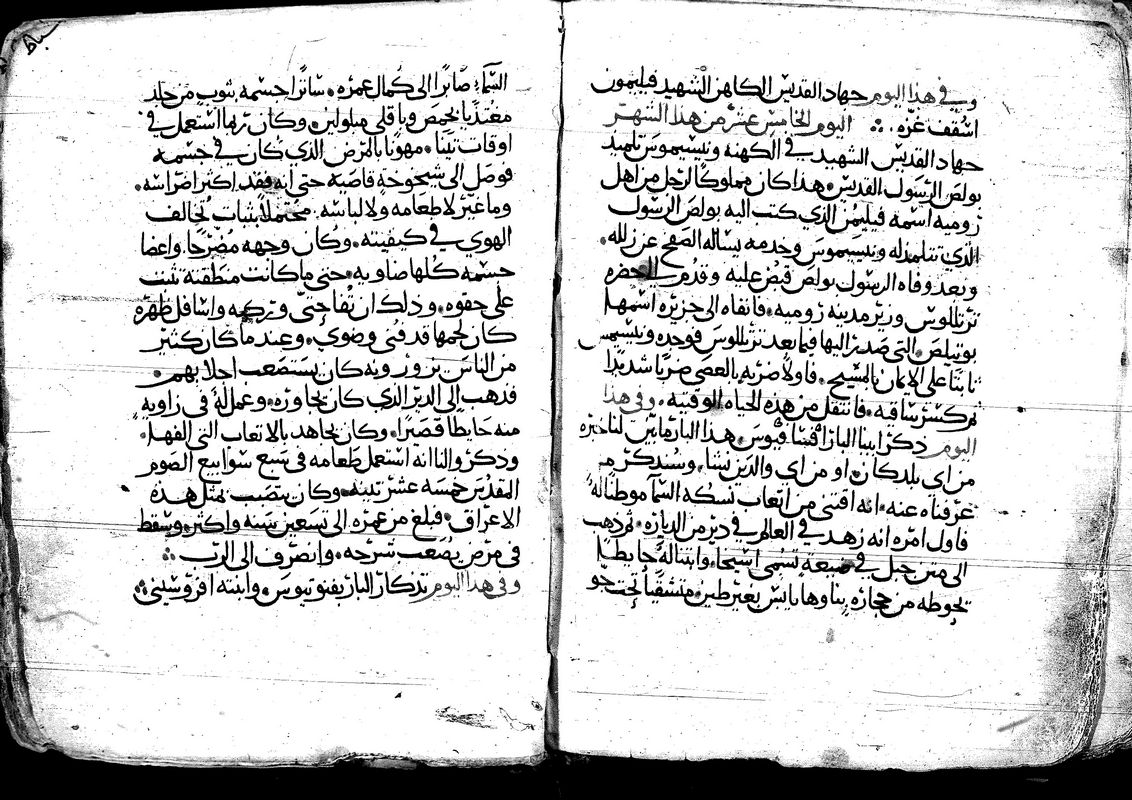 وفي هذا اليوم جهاد القديس الكاهن الشهيد فيليمون
اسقف غزه ∴ اليوم الخامس عشر من هذا الشهر
جهاد القديس الشهيد في الكهنه ونيسيموس تلميذ
بولص الرسول القديس. هذا كان مملوكا لرجل من اهل
روميه اسمه فيليمن الذي كتب اليه بولص الرسول
الذي تتلمذ له ونيسيموس وخدمه يساله الصفح عن زلله.
وبعد وفاه الرسول بولص قبض عليه وقدم الى حضره
ترتللوس وزير مدينه روميه. فانفاه الى جزيره اسمها
بوتيلص. التي صدر اليها فيما بعد ترتللوس فوجده ونيسيمس
ثابتا على الايمان بالمسيح. فاولا ضربه بالعصي ضربا شديدا
ثم كسر ساقيه. فانتقل من هذه الحياه الوقتيه. وفي هذا
اليوم ذكر ابينا البار افسافيوس. هذا البار ما تبين لنا خبره
من اي بلد كان. او من اي والدين نشا. وسنذكر ما
عرفناه عنه. انه اقتنى من اتعاب نسكه السما موطنا له
فاول امره انه زهد في العالم في دير من الدياره. ثم ذهب
الى متن جبل في ضيعه تسمى اسيحا. وابتنا له حايطا
يحوطه من حجاره بناوها يابس بغير طين. متشقيا تحت جو
السما. صابرا الى كمال عمره. ساترا جسمه بثوب من جلد
مغتذيا بحمص وباقلى مبلولين. وكان ربما استعمل في
اوقات تينا. مهونا بالمرض الذي كان في جسمه
فوصل الى شيخوخه قاصيه حتى انه فقد اكثر اضراسه.
وما غير لا طعامه ولا لباسه. محتملا بثبات تخالف
الهوي في كيفيته. وكان وجهه مضرحا. واعضا
جسمه كلها ضاويه. حتى ما كانت منطقته تثبت
على حقوه. وذلك ان وركيه واسافل ظهره
كان لحمها قد فني وضوي. وعند ما كان كثير
من الناس يزورونه كان يستصعب اجلابهم.
فذهب الى الدير الذي كان يجاوره. وعمل له في زاويه
منه حايطا قصيرا. وكان يجاهد بالاتعاب التي الفها.
وذكروا لنا انه استعمل طعامه في سبع سوابيع الصوم
المقدس خمسه عشر تينه. وكان ينتصب بمثل هذه
الاعراق. فبلغ من عمره الى تسعين سنه واكثر. وسقط
في مرض يصعب شرحه. وانصرف الى الرب ∴
وفي هذا اليوم تذكار البار بفنوتيوس وابنته افروسيني ∴